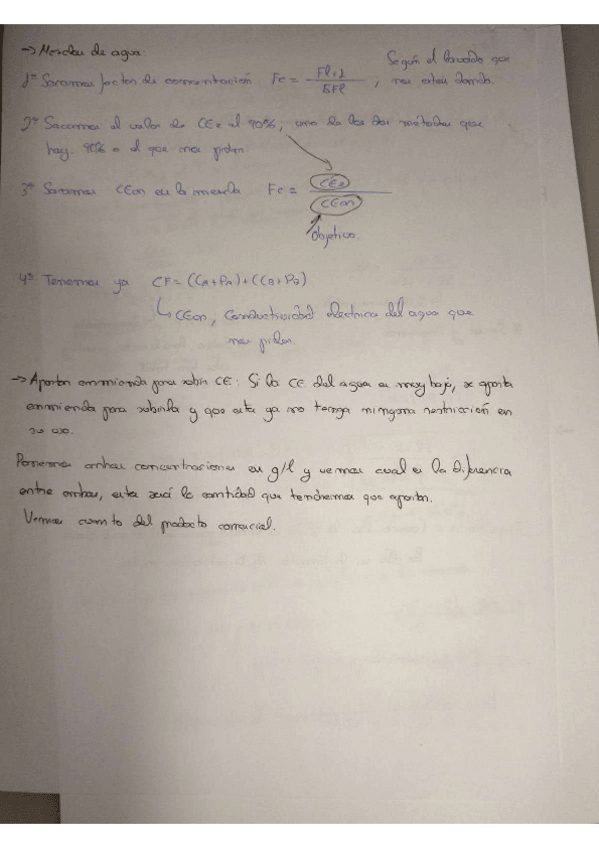 → Mezclas de agua.
Según el lavado que
1º Sacamos factor de concentración Fc = Fl+1 / 5Fl ; nos estén dando.
2º Sacamos el valor de CEe al 90%; uno de los dos métodos que
hay. 90% o el que nos piden.
3º Sacamos CEan en la mezcla Fc = CEe / CEan
Objetivo.
4º Tenemos ya CF = (CA+PA)+(CB+PB)
↳ CEan, Conductividad eléctrica del agua que
nos piden.
→ Aportar enmienda para subir CE: Si la CE del agua es muy baja, se aporta
enmienda para subirla y que esta ya no tenga ninguna restricción en
su uso.
Ponemos ambas concentraciones en g/l y vemos cual es la diferencia
entre ambas, esta será la cantidad que tendremos que aportar.
Vemos cuanto del producto comercial.